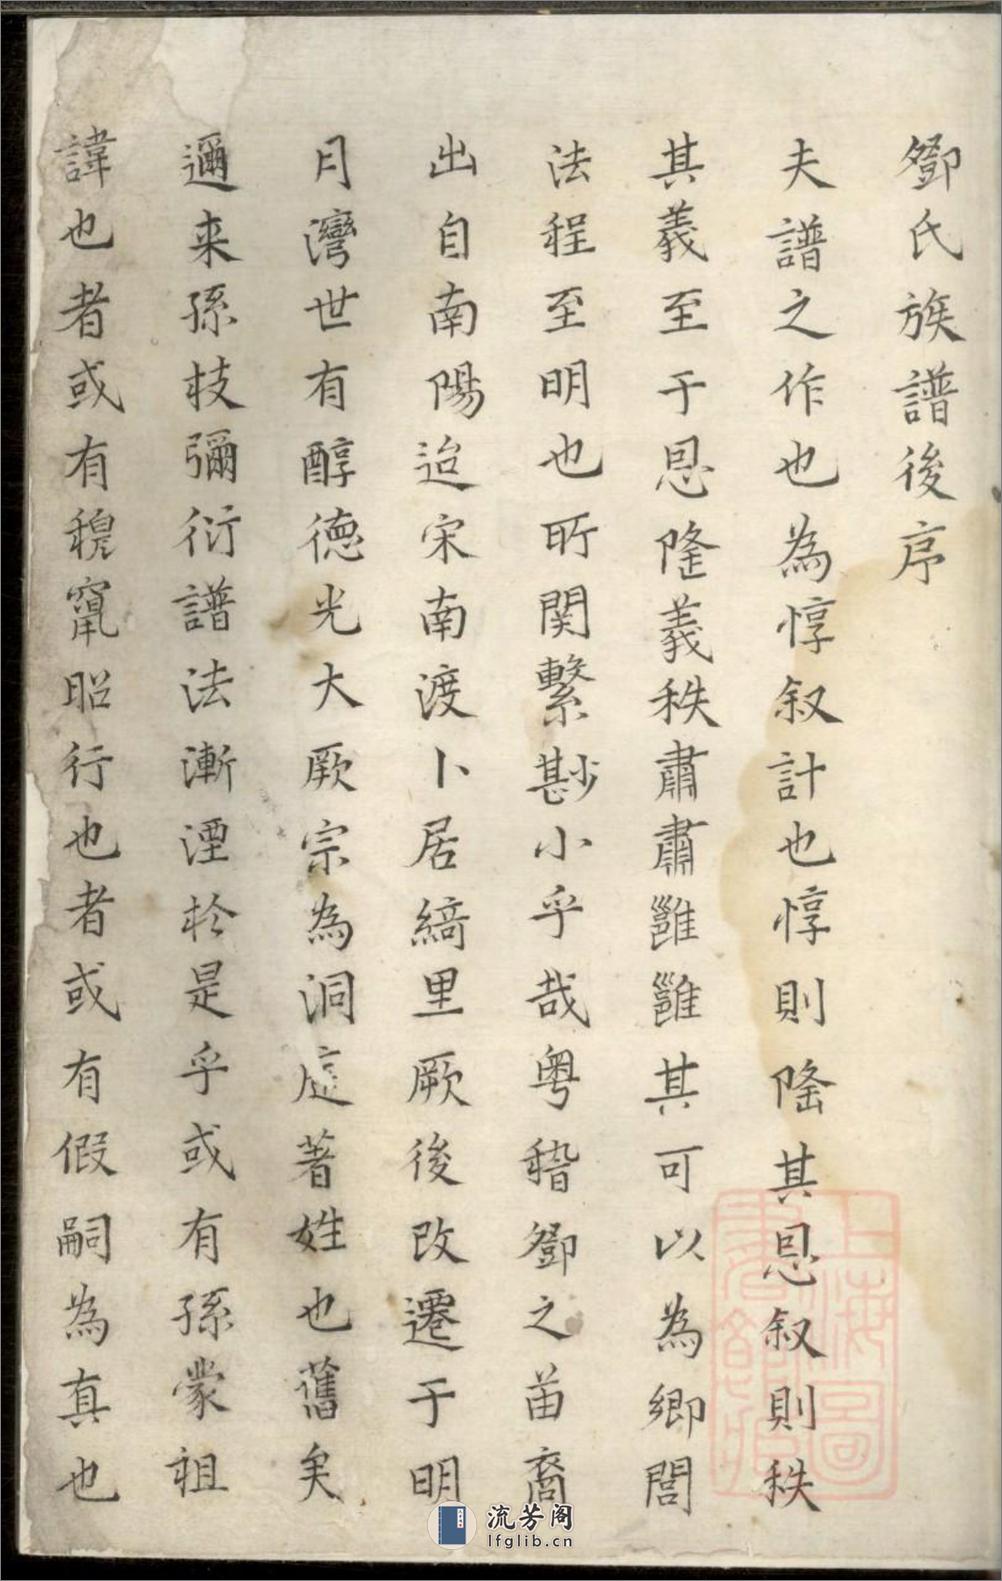 鄧氏族譜後序
夫譜之作也為惇叙計也惇則隆其恩叙則秩
其義至于恩隆義秩肅肅雝雝其可以為鄉閭
法程至明也所関繫尠小乎哉粤稽鄧之苗裔
出自南陽迨宋南渡卜居縞里厥後改遷于明
月灣世有醇德光大厥宗為洞庭著姓也舊矣
邇来孫枝彌衍譜法漸湮於是乎或有孫蒙祖
諱也者或有穆竄昭行也者或有假嗣為真也
上海圖書館藏
流芳阁
lfglib.cn